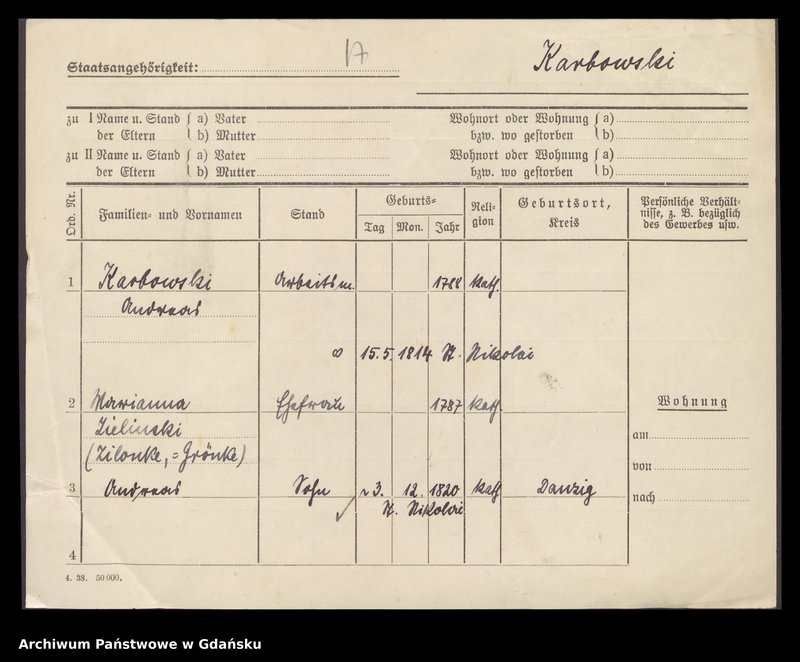 17
Karbowski
Staatsangehörigkeit:
zu I Name u. Stand { a) Vater
der Eltern { b) Mutter
Wohnort oder Wohnung { a)
bzw. wo gestorben { b)
zu II Name u. Stand { a) Vater
der Eltern { b) Mutter
Wohnort oder Wohnung { a)
bzw. wo gestorben { b)
Ord. Nr.
Familien- und Vornamen
Stand
Geburts-
Tag Mon. Jahr
Reli-
gion
Geburtsort,
Kreis
Persönliche Verhält-
nisse, z. B. bezüglich
des Gewerbes usw.
1 Karbowski Arbeitsm. 1788 kath.
Andreas
∞ 15. 5. 1814 St. Nikolai
2 Marianna Ehefrau 1787 kath.
Zielinski
(Zilonke, =Grönke)
3 Andreas Sohn ~ 3. 12. 1820 kath. Danzig
St. Nikolai
4
Wohnung
am
von
nach
4. 38. 50 000.
Archiwum Państwowe w Gdańsku